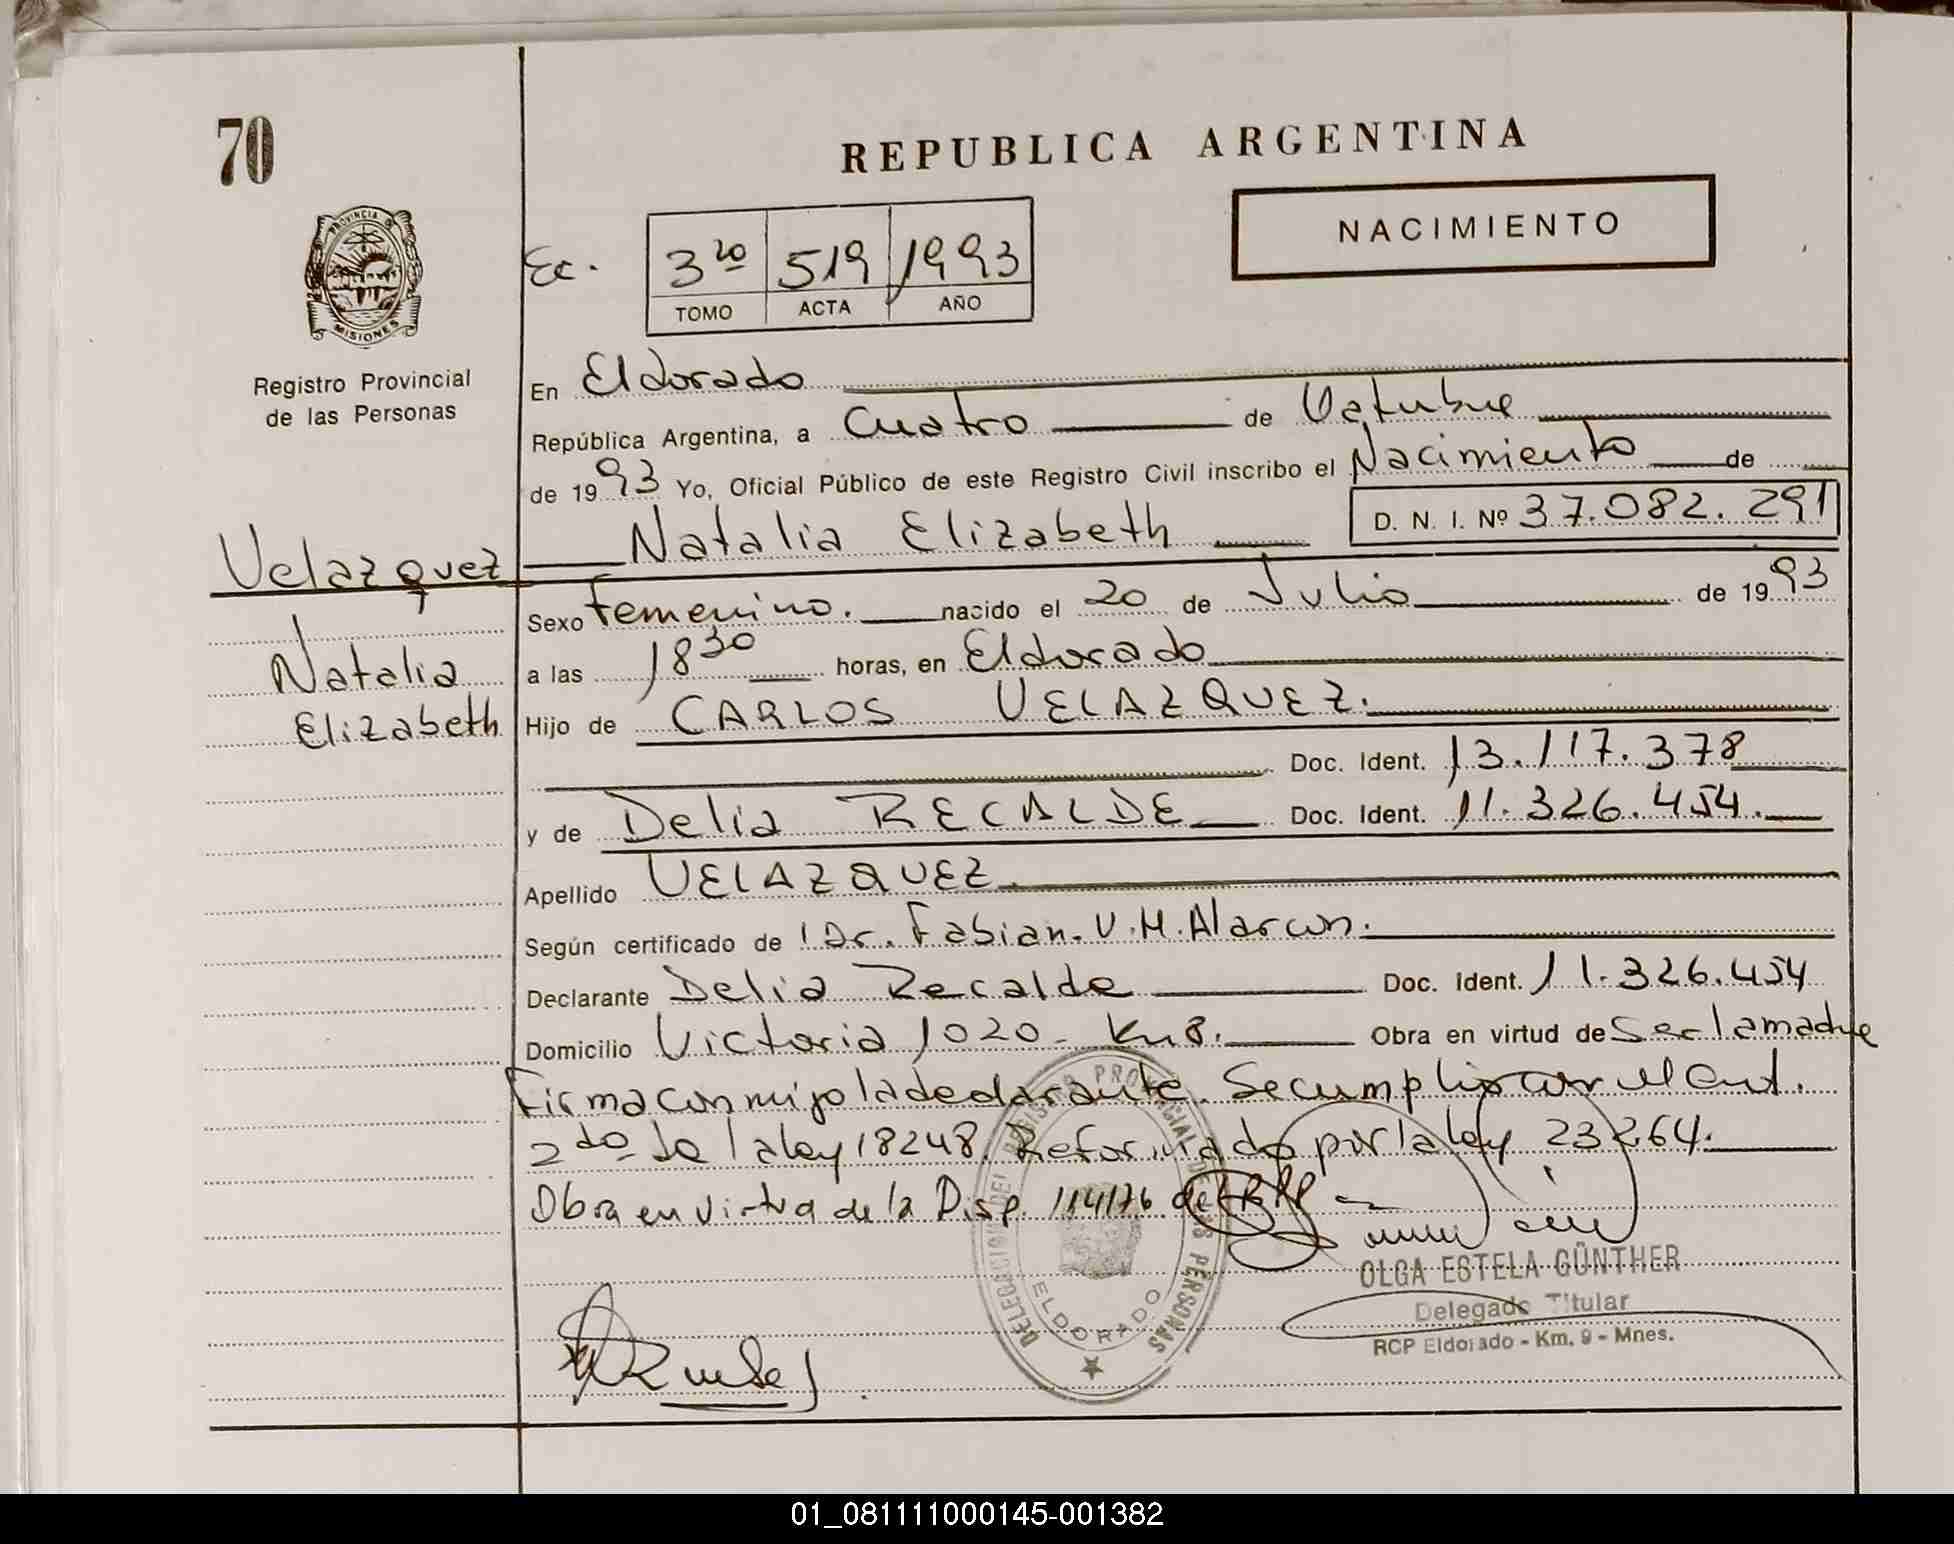 70
REPUBLICA ARGENTINA
NACIMIENTO
PROVINCIA DE
MISIONES
Registro Provincial
de las Personas
Ec. 3ro 519 1993
TOMO ACTA AÑO
En Eldorado
República Argentina, a Cuatro de Octubre
de 1993 Yo, Oficial Público de este Registro Civil inscribo el Nacimiento de
Natalia Elizabeth D. N. I. Nº 37.082.291
Velazquez
Natalia
Elizabeth
Sexo Femenino. nacido el 20 de Julio de 1993
a las 1830 horas, en Eldorado
Hijo de CARLOS VELAZQUEZ.
Doc. Ident. 13.117.378
y de Delia RECALDE Doc. Ident. 11.326.454.
Apellido VELAZQUEZ.
Según certificado de Dr. Fabian. V. M. Alarcon.
Declarante Delia Recalde Doc. Ident. 11.326.454
Domicilio Victoria 1020 - Km 8. Obra en virtud de ser la madre
Firma conmigo la declarante. Se cumplio con el art.
2do de la ley 18248. Reformado por la ley 23264.
Obra en virtud de la Disp. 114/76 del RPP
DELEGACION DEL REGISTRO PROVINCIAL DE LAS PERSONAS
ELDORADO
OLGA ESTELA GÜNTHER
Delegado Titular
RCP Eldorado - Km. 9 - Mnes.
01_081111000145-001382